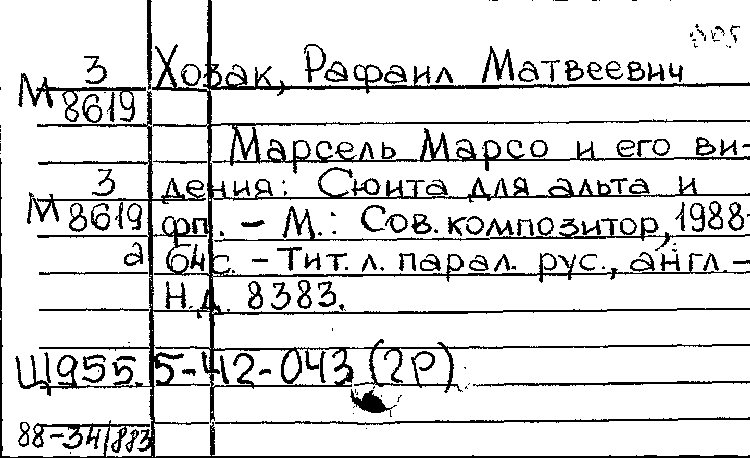 З Хозак, Рафаил Матвеевич
М 8619
Марсель Марсо и его ви-
З дения: Сюита для альта и
М 8619 фп. – М.: Сов. композитор, 1988-
а 64с. – Тит. л. парал. рус., англ.–
Н.д. 8383.
Щ955.5-412-043 (2Р)
88-34/883